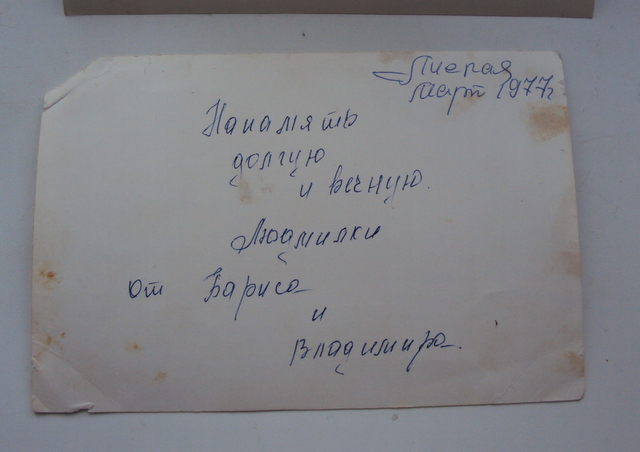 март 1977г
Напамять
долгую
и вечную.
Людмилки
от Бариса
и
Владимира.